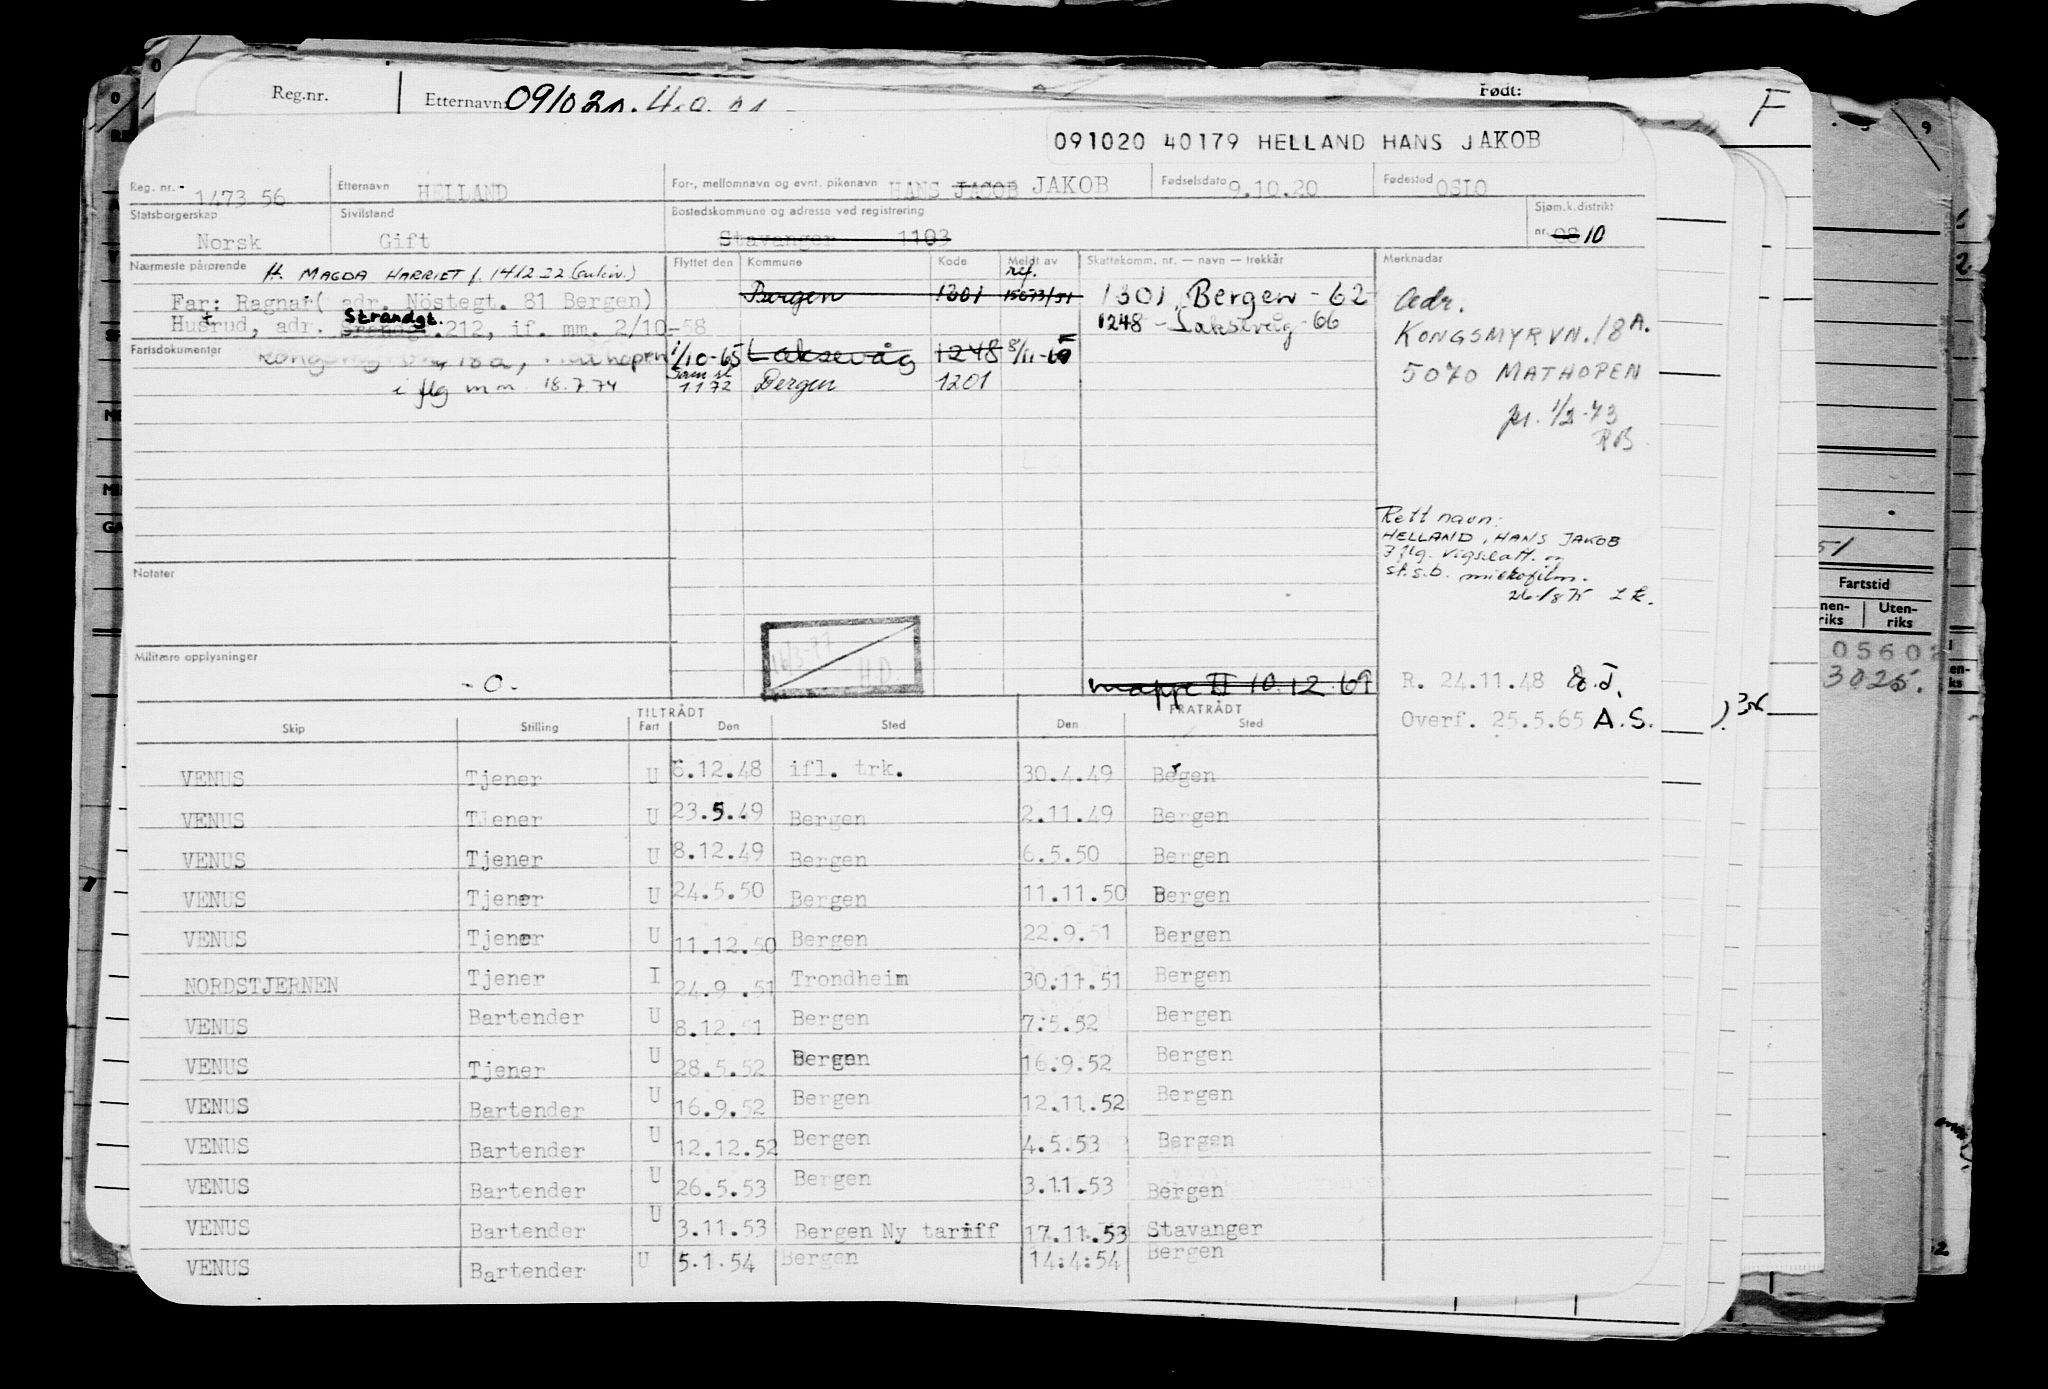 Reg.nr. Etternavn: Født: F
091020 40179 HELLAND HANS JAKOB
Reg. nr. 1473 56 Etternavn HELLAND For-, mellomnavn og evnt. pikenavn HANS JACOB JAKOB Fødselsdato 9.10.20 Fødested OSLO
Statsborgerskap Norsk Sivilstand Gift Bostedskommune og adresse ved registrering Stavanger 1103 Sjøm.k.distrikt nr. 08 10
Nærmeste pårørende H. MAGDA HARRIET f. 14.12.22 (arkiv.) Flyttet den Kommune Kode Meldt av Skattekomm. nr. — navn — trekkår Merknader
ref.
Far: Ragnar( adr. Nöstegt. 81 Bergen) Bergen 1301 1301, Bergen - 62 Adr.
Strandgt.
Hustrud, adr. 212, if. mm. 2/10-58 1248 - Laksevåg - 66 KONGSMYRVN. 18 A.
Fartsdokumenter 18a, 1/10-65 Laksevåg 1248 8/11-65
i flg mm 18.7.74 1172 Bergen 1201 5070 MATHOPEN
1/2-73
RB
Rett navn:
HELLAND, HANS JAKOB
st.s.b. mikrofilm.
Notater
16/3-77 H.D.
Militære opplysninger
-0- mappe II 10.12.69 R. 24.11.48
Overf. 25.5.65 A.S.
TILTRÅDT FRATRÅDT
Skip Stilling Fart Den Sted Den Sted
VENUS Tjener U 6.12.48 ifl. trk. 30.4.49 Begen
VENUS Tjener U 23.5.49 Bergen 2.11.49 Bergen
VENUS Tjener U 8.12.49 Bergen 6.5.50 Bergen
VENUS Tjener U 24.5.50 Bergen 11.11.50 Bergen
VENUS Tjener U 11.12.50 Bergen 22.9.51 Bergen
NORDSTJERNEN Tjener I 24.9 .51 Trondheim 30.11.51 Bergen
VENUS Bartender U 8.12.51 Bergen 7.5.52 Bergen
VENUS Tjener U 28.5.52 Bergen 16.9.52 Bergen
VENUS Bartender U 16.9.52 Bergen 12.11.52 Bergen
VENUS Bartender U 12.12.52 Bergen 4.5.53 Bergen
VENUS Bartender U 26.5.53 Bergen 3.11.53 Bergen
VENUS Bartender U 3.11.53 Bergen Ny tariff 17.11.53 Stavanger
VENUS Bartender U 5.1.54 Bergen 14:4:54 Bergen
Fartstid
Uten-
riks
3025.